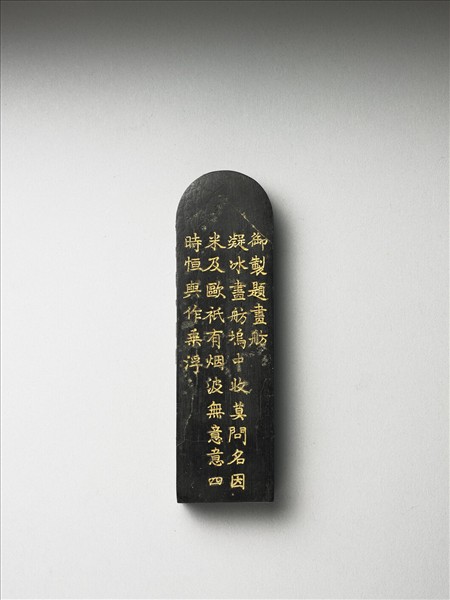 御製題畫舫
凝冰畫舫塢中收莫問名因
米及歐祇有烟波無意意四
時恒與作乘浮